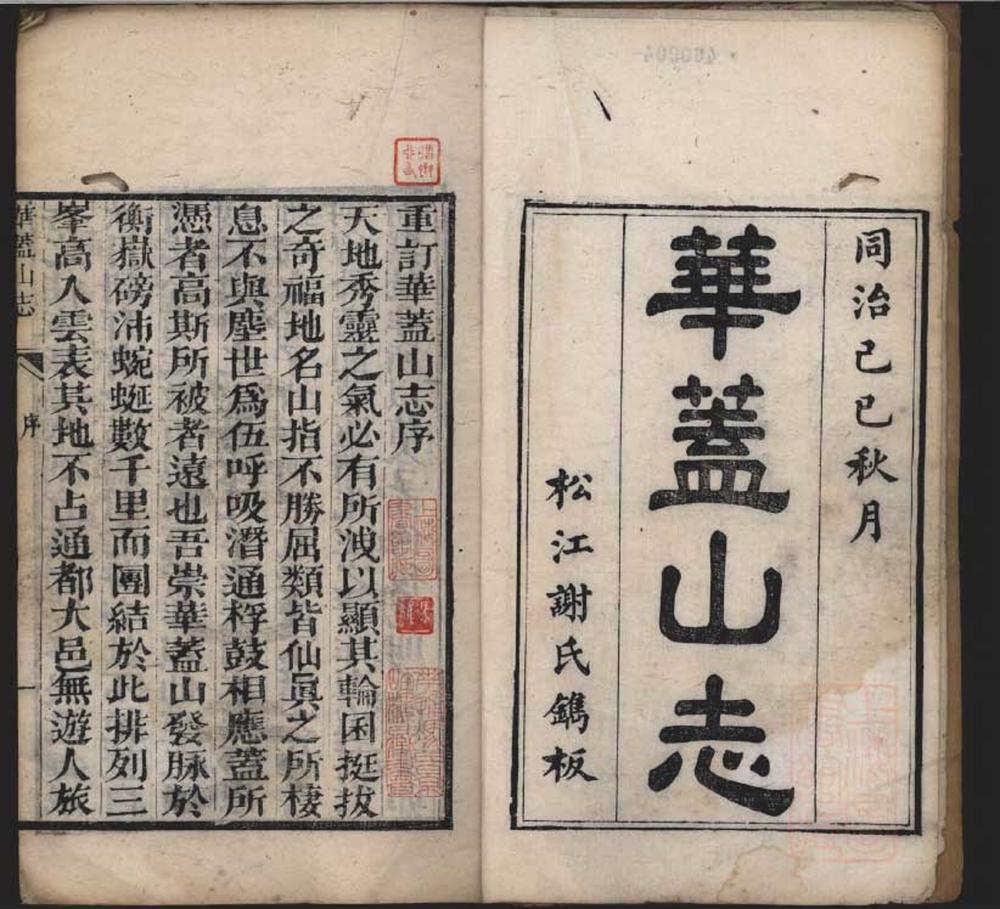 同治己巳秋月
華蓋山志
松江謝氏鐫板
重訂華蓋山志序
天地秀靈之氣必有所洩以顯其輪囷挺拔
之奇福地名山指不勝屈類皆仙眞之所棲
息不與塵世爲伍呼吸潛通桴鼓相應蓋所
憑者高斯所被者遠也吾崇華蓋山發脉於
衡嶽磅沛蜿蜒數千里而團結於此排列三
峯高入雲表其地不占通都大邑無遊人旅
華蓋山志 序 一